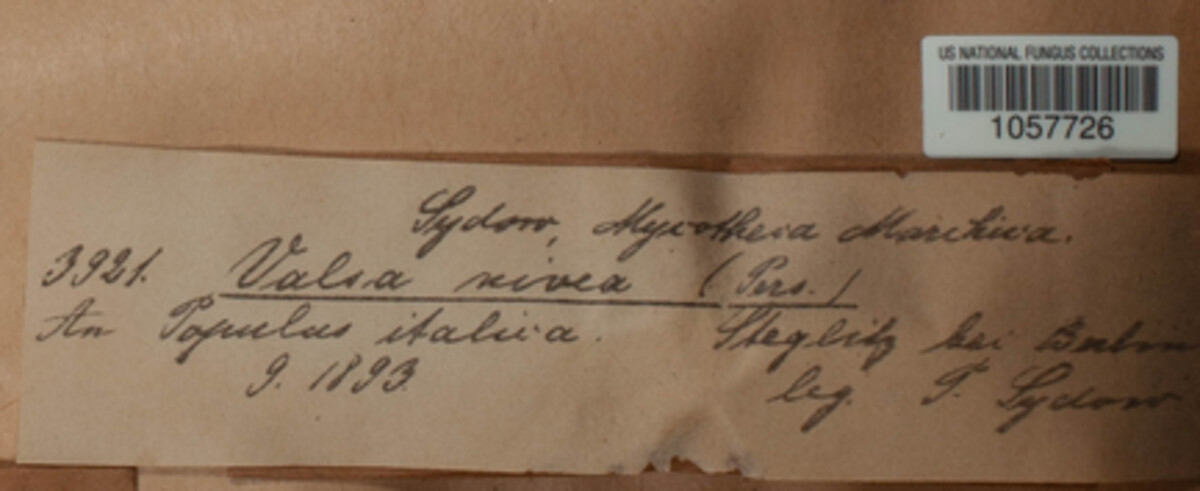 US NATIONAL FUNGUS COLLECTIONS
1057726
Sydow, Mycotheca Marchica.
3921. Valsa nivea (Pers.)
An Populus italica. Steglitz bei Berlin
9. 1893. leg. P. Sydow